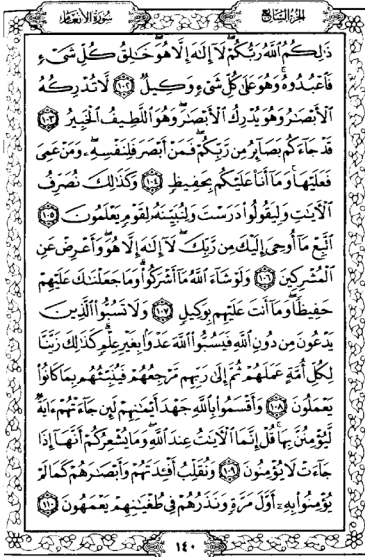 الجزء السابع
سورة الأنعام
ذَٰلِكُمُ ٱللَّهُ رَبُّكُمْ لَآ إِلَٰهَ إِلَّا هُوَ خَٰلِقُ كُلِّ شَىْءٍ
فَٱعْبُدُوهُ وَهُوَ عَلَىٰ كُلِّ شَىْءٍ وَكِيلٌ ١٠٢ لَّا تُدْرِكُهُ
ٱلْأَبْصَٰرُ وَهُوَ يُدْرِكُ ٱلْأَبْصَٰرَ وَهُوَ ٱللَّطِيفُ ٱلْخَبِيرُ ١٠٣
قَدْ جَآءَكُم بَصَآئِرُ مِن رَّبِّكُمْ فَمَنْ أَبْصَرَ فَلِنَفْسِهِۦ وَمَنْ عَمِىَ
فَعَلَيْهَا وَمَآ أَنَا۠ عَلَيْكُم بِحَفِيظٍ ١٠٤ وَكَذَٰلِكَ نُصَرِّفُ
ٱلْءَايَٰتِ وَلِيَقُولُوا۟ دَرَسْتَ وَلِنُبَيِّنَهُۥ لِقَوْمٍ يَعْلَمُونَ ١٠٥
ٱتَّبِعْ مَآ أُوحِىَ إِلَيْكَ مِن رَّبِّكَ لَآ إِلَٰهَ إِلَّا هُوَ وَأَعْرِضْ عَنِ
ٱلْمُشْرِكِينَ ١٠٦ وَلَوْ شَآءَ ٱللَّهُ مَآ أَشْرَكُوا۟ وَمَا جَعَلْنَٰكَ عَلَيْهِمْ
حَفِيظًا وَمَآ أَنتَ عَلَيْهِم بِوَكِيلٍ ١٠٧ وَلَا تَسُبُّوا۟ ٱلَّذِينَ
يَدْعُونَ مِن دُونِ ٱللَّهِ فَيَسُبُّوا۟ ٱللَّهَ عَدْوًۢا بِغَيْرِ عِلْمٍ كَذَٰلِكَ زَيَّنَّا
لِكُلِّ أُمَّةٍ عَمَلَهُمْ ثُمَّ إِلَىٰ رَبِّهِم مَّرْجِعُهُمْ فَيُنَبِّئُهُم بِمَا كَانُوا۟
يَعْمَلُونَ ١٠٨ وَأَقْسَمُوا۟ بِٱللَّهِ جَهْدَ أَيْمَٰنِهِمْ لَئِن جَآءَتْهُمْ ءَايَةٌ
لَّيُؤْمِنُنَّ بِهَا قُلْ إِنَّمَا ٱلْءَايَٰتُ عِندَ ٱللَّهِ وَمَا يُشْعِرُكُمْ أَنَّهَآ إِذَا
جَآءَتْ لَا يُؤْمِنُونَ ١٠٩ وَنُقَلِّبُ أَفْـِٔدَتَهُمْ وَأَبْصَٰرَهُمْ كَمَا لَمْ
يُؤْمِنُوا۟ بِهِۦٓ أَوَّلَ مَرَّةٍ وَنَذَرُهُمْ فِى طُغْيَٰنِهِمْ يَعْمَهُونَ ١١٠
١٤٠